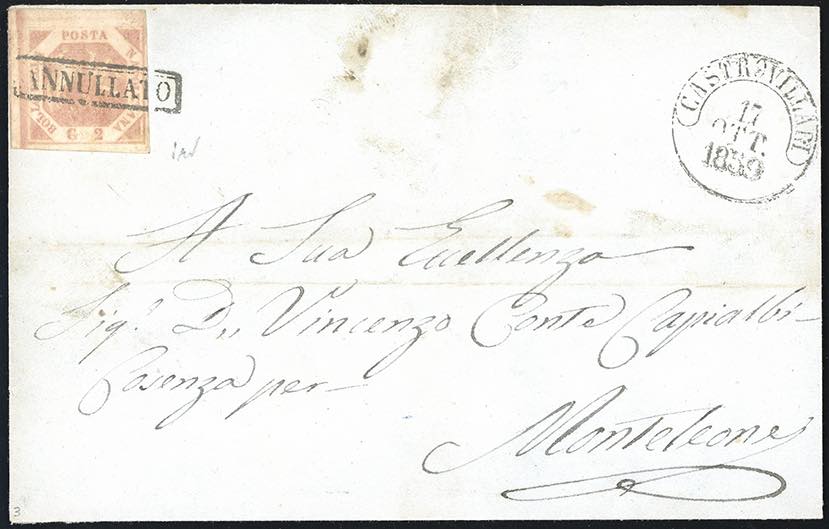 POSTA NA
ANNULLATO
ANA BOL
G 2
CASTROVILLARI
17
OTT.
1859
A Sua Eccellenza
Sig.r D.n Vincenzo Conte Capialbi
Cosenza per
Monteleone
3